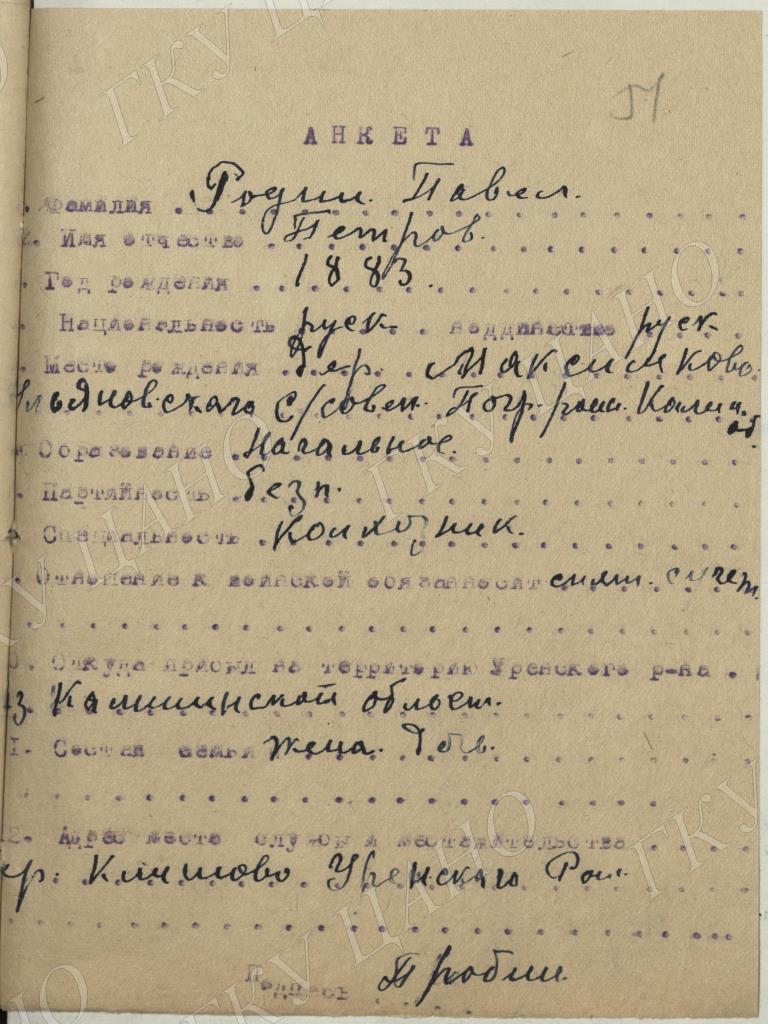 51
АНКЕТА
. Фамилия . Родин. Павел.
2. Имя отчество . . Петров.
. Год рождения . . 1883.
. Национальность руск. . подданство руск.
. Место рождения . дер. Максимково.
Ульяновского с/совет. Погр. роин. Калин. об
. Образование . Начальное.
. Партийность . безп.
. Специальность . колхозник.
. Отношение к воинской обязанносит снят. с учет.
0. Откуда прибыл на территорию Уренского р-на .
из. Калининской област.
1. Состав семьи жена. дочь.
2. Адрес места службы и местажительства
ер. Климово Уренского Рои.
Подпись